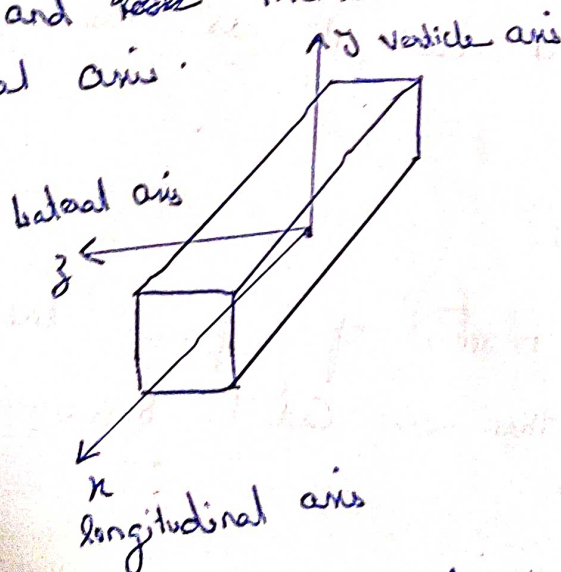 and
al axis.
y verticle axis
Lateral axis
z
x
longitudinal axis